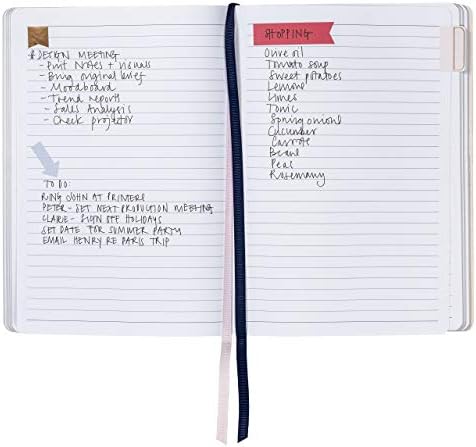 * DESIGN MEETING
- Print Notes + visuals
- Bring original brief
- Moodboard
- Trend reports
- Sales Analysis
- Check projector
TO DO:
RING JOHN AT PRIMERS
PETER - SET NEXT PRODUCTION MEETING
CLAIRE - SIGN OFF HOLIDAYS
SET DATE FOR SUMMER PARTY
EMAIL HENRY RE PARIS TRIP
SHOPPING
Olive oil
Tomato soup
Sweet potatoes
Lemons
Limes
Tonic
Spring onions
Cucumber
Carrots
Beans
Peas
Rosemary